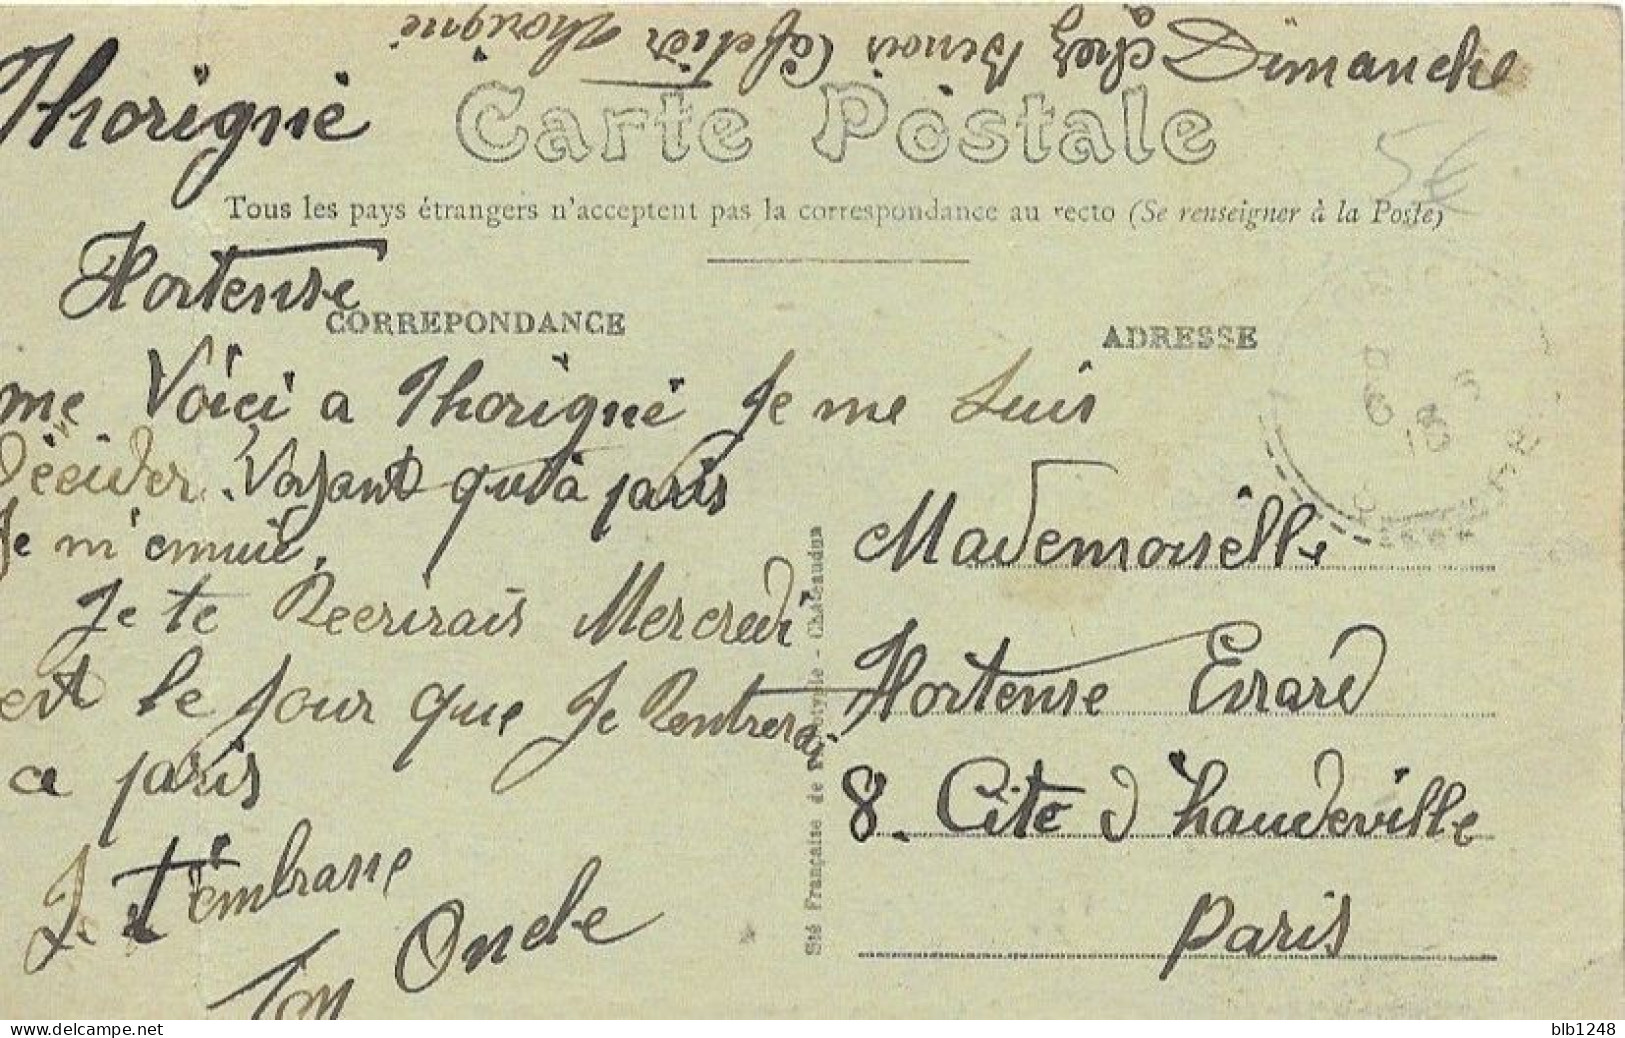 Dimanche
chez Benois Cafetier Thorigné
Thorigné
Carte Postale
Tous les pays étrangers n'acceptent pas la correspondance au recto (Se renseigner à la Poste)
5€
Hortense
CORREPONDANCE
me Voici a Thorigné Je me Suis
Décider. Voyant qu'à paris
Je m'ennuié,
Je te Reecrirais Mercredi
est le Jour que Je Rentrerai
a paris
Je t'embrasse
Ton Oncle
Sté Française de Phototypie - Châteaudun
ADRESSE
Mademoiselle
Hortense Evrard
8. Cité d'hauteville
Paris
blb1248